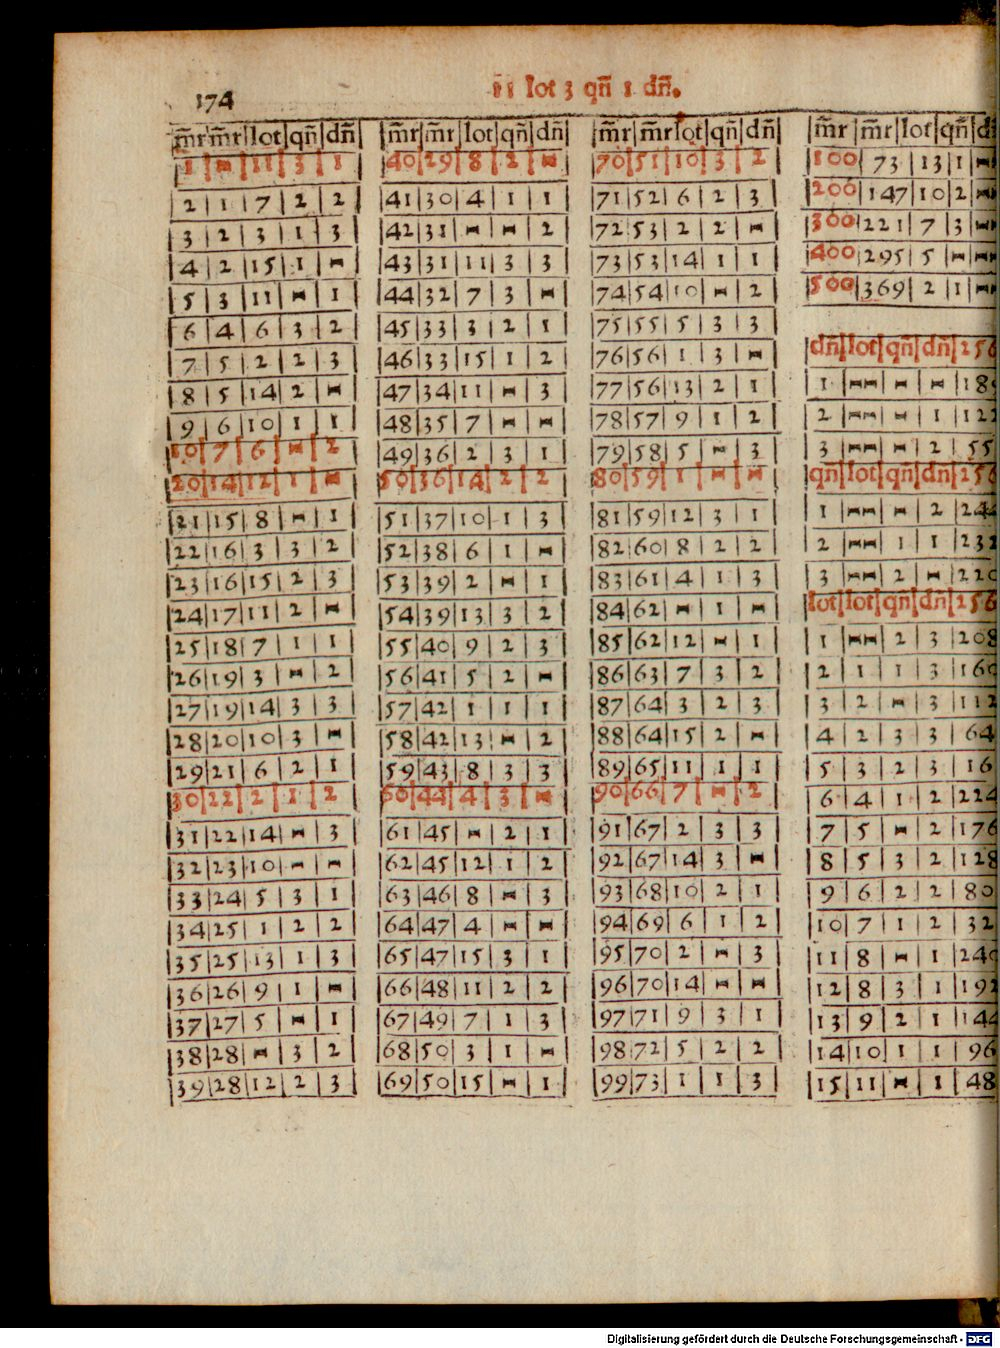 174
11 lot 3 qñ 1 dñ.
m̃r|m̃r|lot|qñ|dñ
1|-|11|3|1
2|1|7|2|2
3|2|3|1|3
4|2|15|1|-
5|3|11|-|1
6|4|6|3|2
7|5|2|2|3
8|5|14|2|-
9|6|10|1|1
10|7|6|-|2
20|14|12|1|-
21|15|8|-|1
22|16|3|3|2
23|16|15|2|3
24|17|11|2|-
25|18|7|1|1
26|19|3|-|2
27|19|14|3|3
28|20|10|3|-
29|21|6|2|1
30|22|2|1|2
31|22|14|-|3
32|23|10|-|-
33|24|5|3|1
34|25|1|2|2
35|25|13|1|3
36|26|9|1|-
37|27|5|-|1
38|28|-|3|2
39|28|12|2|3
m̃r|m̃r|lot|qñ|dñ
40|29|8|2|-
41|30|4|1|1
42|31|-|-|2
43|31|11|3|3
44|32|7|3|-
45|33|3|2|1
46|33|15|1|2
47|34|11|-|3
48|35|7|-|-
49|36|2|3|1
50|36|14|2|2
51|37|10|1|3
52|38|6|1|-
53|39|2|-|1
54|39|13|3|2
55|40|9|2|3
56|41|5|2|-
57|42|1|1|1
58|42|13|-|2
59|43|8|3|3
60|44|4|3|-
61|45|-|2|1
62|45|12|1|2
63|46|8|-|3
64|47|4|-|-
65|47|15|3|1
66|48|11|2|2
67|49|7|1|3
68|50|3|1|-
69|50|15|-|1
m̃r|m̃r|lot|qñ|dñ
70|51|10|3|2
71|52|6|2|3
72|53|2|2|-
73|53|14|1|1
74|54|10|-|2
75|55|5|3|3
76|56|1|3|-
77|56|13|2|1
78|57|9|1|2
79|58|5|-|3
80|59|1|-|-
81|59|12|3|1
82|60|8|2|2
83|61|4|1|3
84|62|-|1|-
85|62|12|-|1
86|63|7|3|2
87|64|3|2|3
88|64|15|2|-
89|65|11|1|1
90|66|7|-|2
91|67|2|3|3
92|67|14|3|-
93|68|10|2|1
94|69|6|1|2
95|70|2|-|3
96|70|14|-|-
97|71|9|3|1
98|72|5|2|2
99|73|1|1|3
m̃r|m̃r|lot|qñ|
100|73|13|1|-
200|147|10|2|-
300|221|7|3|-
400|295|5|-|-
500|369|2|1|-
dñ|lot|qñ|dñ|256
1|-|-|-|189
2|-|-|1|122
3|-|-|2|55
qñ|lot|qñ|dñ|256
1|-|-|2|244
2|-|1|1|232
3|-|2|-|220
lot|lot|qñ|dñ|256
1|-|2|3|208
2|1|1|3|160
3|2|-|3|112
4|2|3|3|64
5|3|2|3|16
6|4|1|2|224
7|5|-|2|176
8|5|3|2|128
9|6|2|2|80
10|7|1|2|32
11|8|-|1|240
12|8|3|1|192
13|9|2|1|144
14|10|1|1|96
15|11|-|1|48
Digitalisierung gefördert durch die Deutsche Forschungsgemeinschaft - DFG